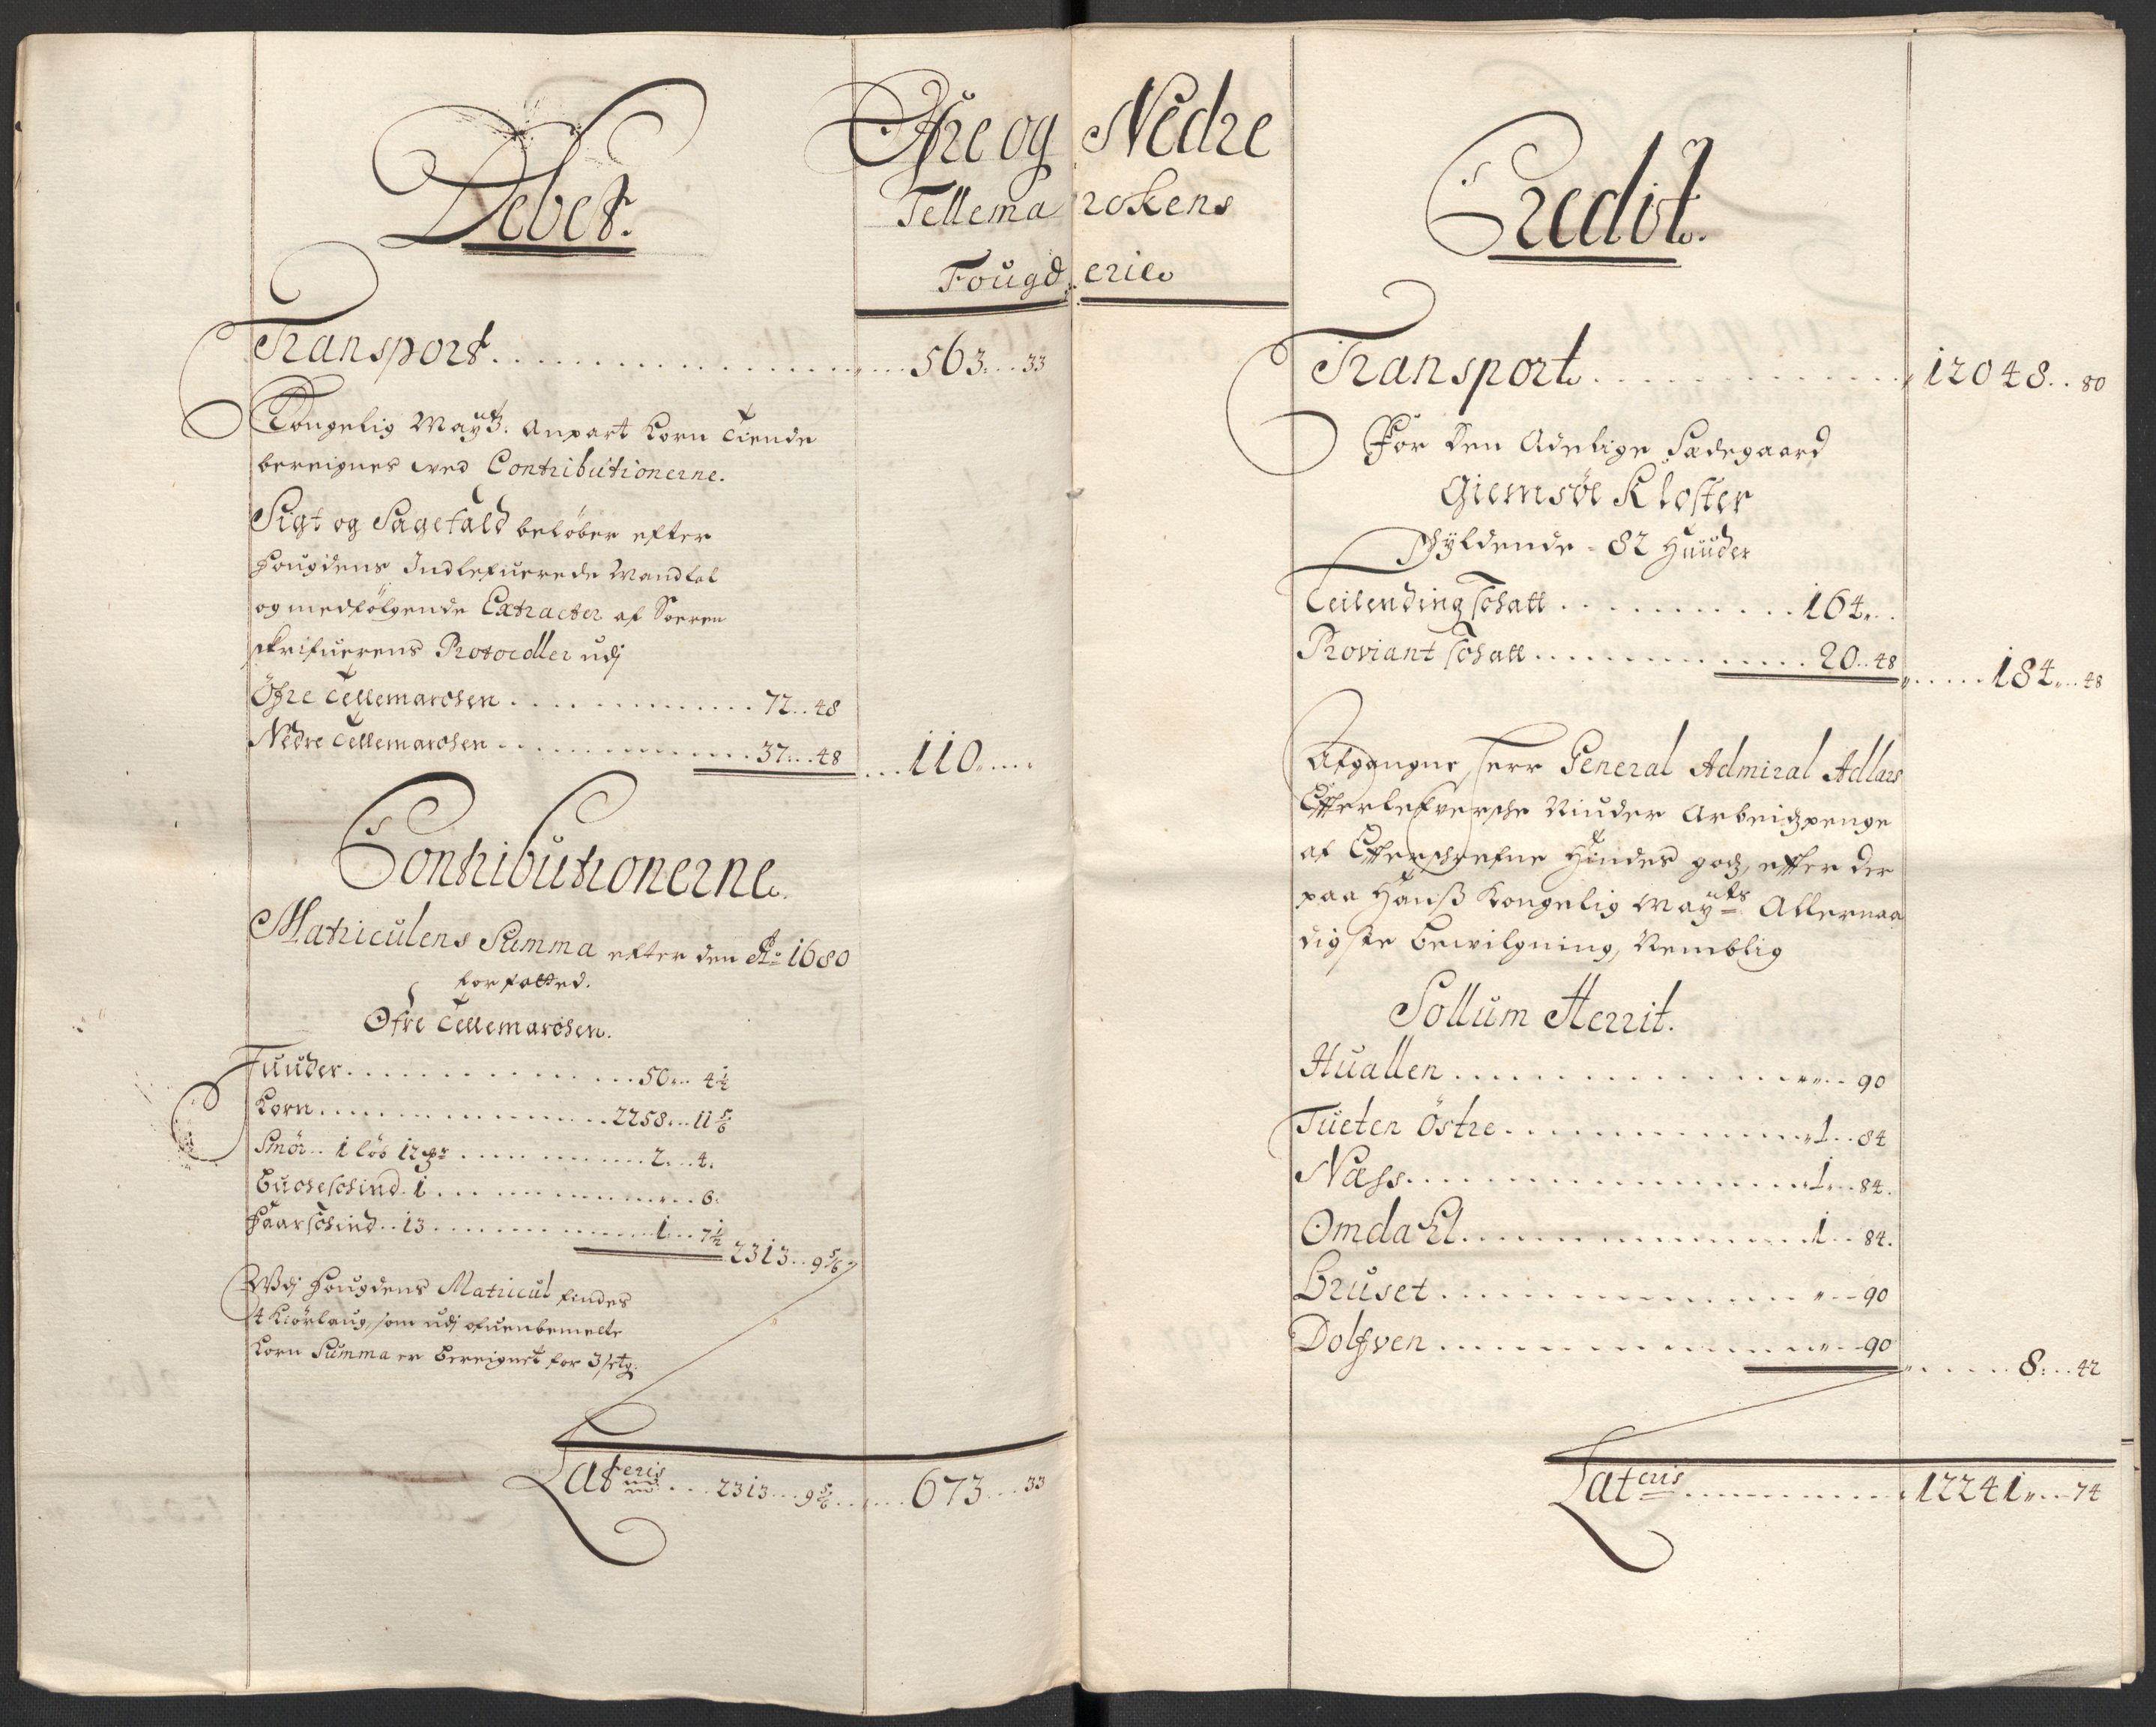 Debet.
Øfre og Nedre
Tellemarckens
Fougderie
Transport . . . 563 . . 33
Kongelig Mayts. anpart Korn Tiende
bereignes ved Contributionerne.
Sigt og Sagefald beløber efter
fougdens Indlefuerede Mandtal
og medfölgende Extracter af Soren
skrifuerens Protocoller udj
Öfre Tellemarchen . . . 72 . . 48
Nedre Tellemarchen . . . 37 . . 48 . . . 110
Contributionerne.
Matriculens Summa efter den Ao 1680
forfatted.
Ofre Tellemarchen.
Huuder . . . 50 . . 4 1/2
Korn . . . 2258 . . 11 5/6
Smör . . 1 löb 12 . . . 2 . . 4.
Buckeschind . 1 . . . 6.
Faarschind . . 13 . . . 1 . . 7 1/2
2313 . . 9 5/6
Udj fougdens Matricul findes
4 Kiörlaug, som udj ofuenbemelte
Korn Summa er bereignet for 3 setg.
Lateris . . . 2313 . . 9 5/6 . . . 673 . . 33
Credit.
Transport . . . 12048 . . 80
For den Adelige Sædegaard
Giemsöe Kloster
Schyldende - 82 Huuder
Leilending schatt . . . 164
Proviant schatt . . . 20 . . 48 . . . 184 . . 48
Afgangne Herr General Admiral Adlars
Efterlefversche Niuder Arbeidzpenge
af Efterschrefne Hindes godz, efter der
paa Hanß Kongelig Mayts Allernaa
digste bewilgning, Nemblig
Sollum Herrit.
Huallen . . . 90
Tueten Östre . . . 1 . . 84
Næss . . . 1 . . 84.
Omdahl . . . 1 . . 84.
Bruset . . . 90
Dolfven . . . 90
8 . . 42
Lateris . . . 12241 . . 74